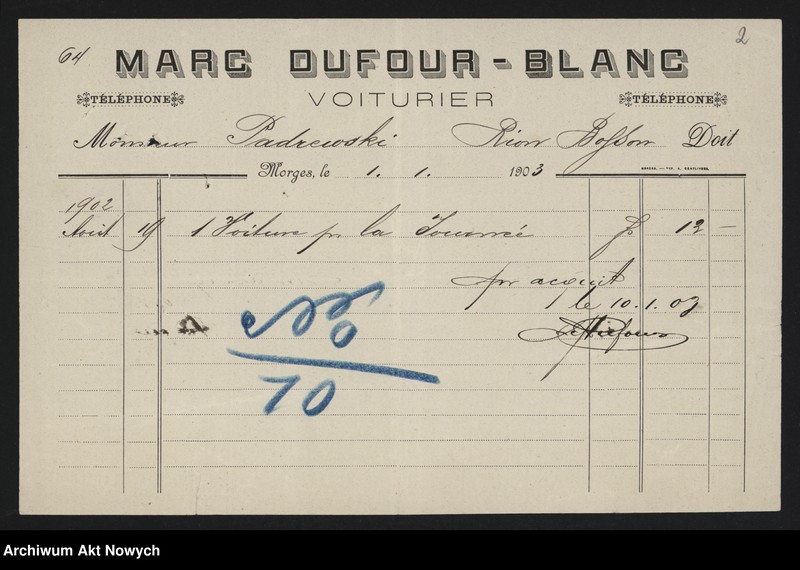 64
2
MARC DUFOUR-BLANC
TÉLÉPHONE VOITURIER TÉLÉPHONE
Monsieur Padrewski Rion Bosson Doit
Morges, le 1. 1. 1903
1902
Août 19 1 Voiture pr la Journée fr 12 —
pr acquit
le 10.1.03
No
10
Archiwum Akt Nowych